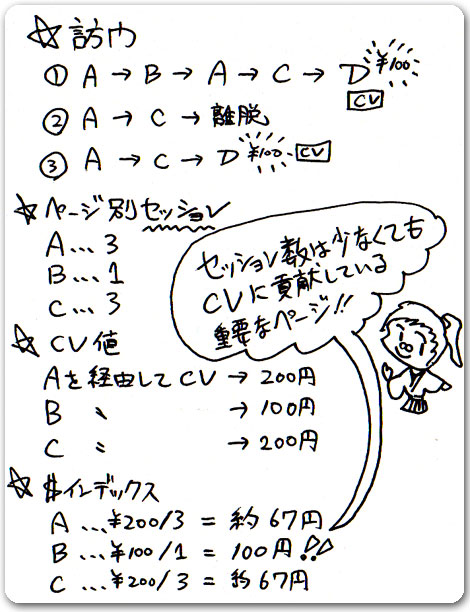 ☆訪问
① A → B → A → C → D ¥100
CV
② A → C → 離脱
③ A → C → D ¥100 CV
☆ページ別セッション
A…3
B…1
C…3
セッション数は少なくても
CVに貢献している
重要なページ!!
☆CV値
Aを経由してCV → 200円
B 〃 → 100円
C 〃 → 200円
☆$インデックス
A …¥200/3 = 約67円
B …¥100/1 = 100円!!
C …¥200/3 = 約67円